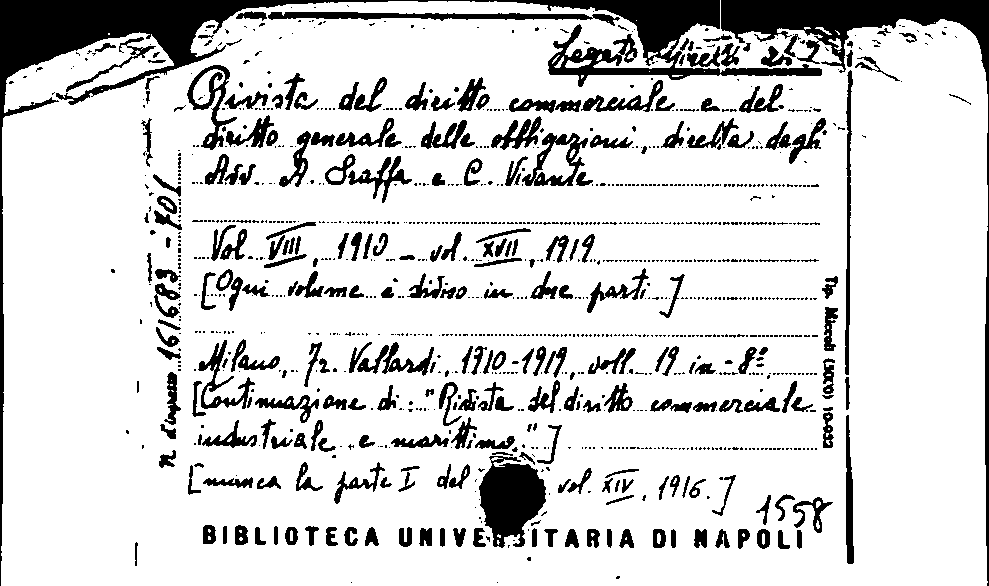 Legato Miretti 247
Rivista del diritto commerciale e del
diritto generale delle obbligazioni, diretta dagli
Avv. A. Sraffa e C. Vivante.
Vol. VIII, 1910 - vol. XVII, 1919.
[Ogni volume è diviso in due parti]
Milano, Fr. Vallardi, 1910-1919, voll. 19 in-8º
[Continuazione di: "Rivista del diritto commerciale
industriale e marittimo."]
[manca la parte I del vol. XIV, 1916.]
1558
BIBLIOTECA UNIVERSITARIA DI NAPOLI
n. d'ingresso 161683-701
Tip. Miccoli (5000) 10-932